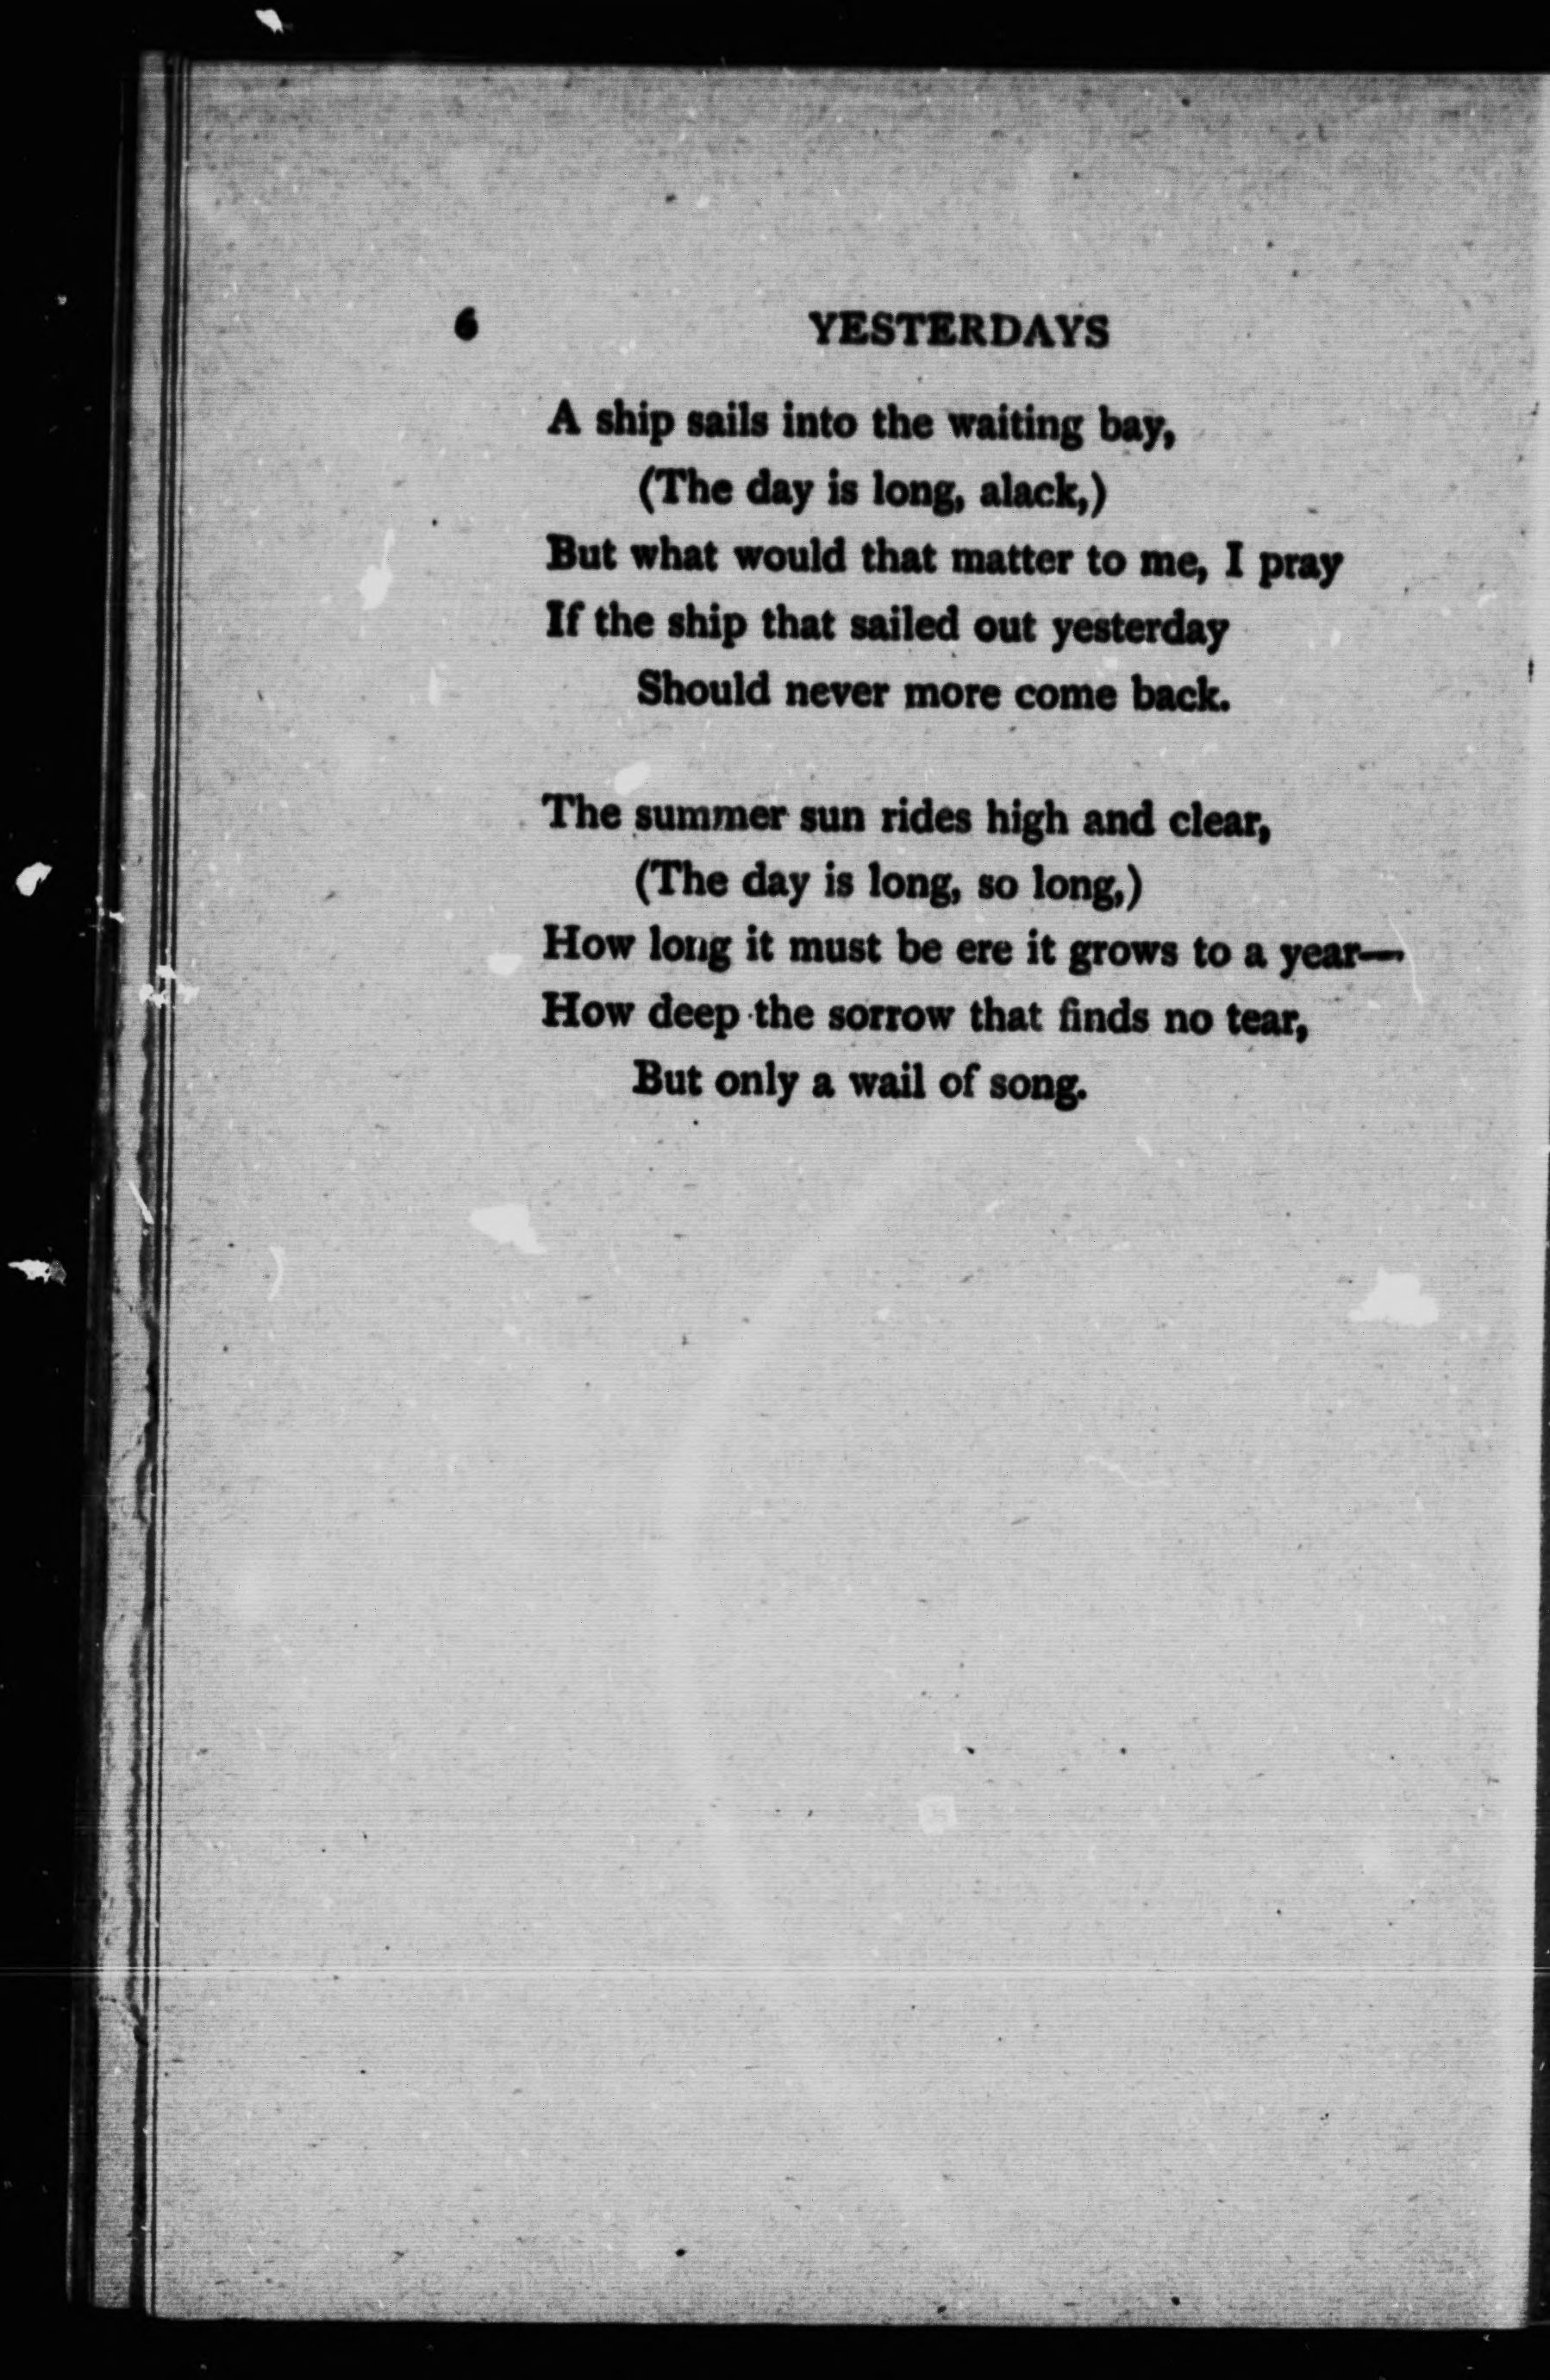 6 YESTERDAYS
A ship sails into the waiting bay,
(The day is long, alack,)
But what would that matter to me, I pray
If the ship that sailed out yesterday
Should never more come back.
The summer sun rides high and clear,
(The day is long, so long,)
How long it must be ere it grows to a year—
How deep the sorrow that finds no tear,
But only a wail of song.